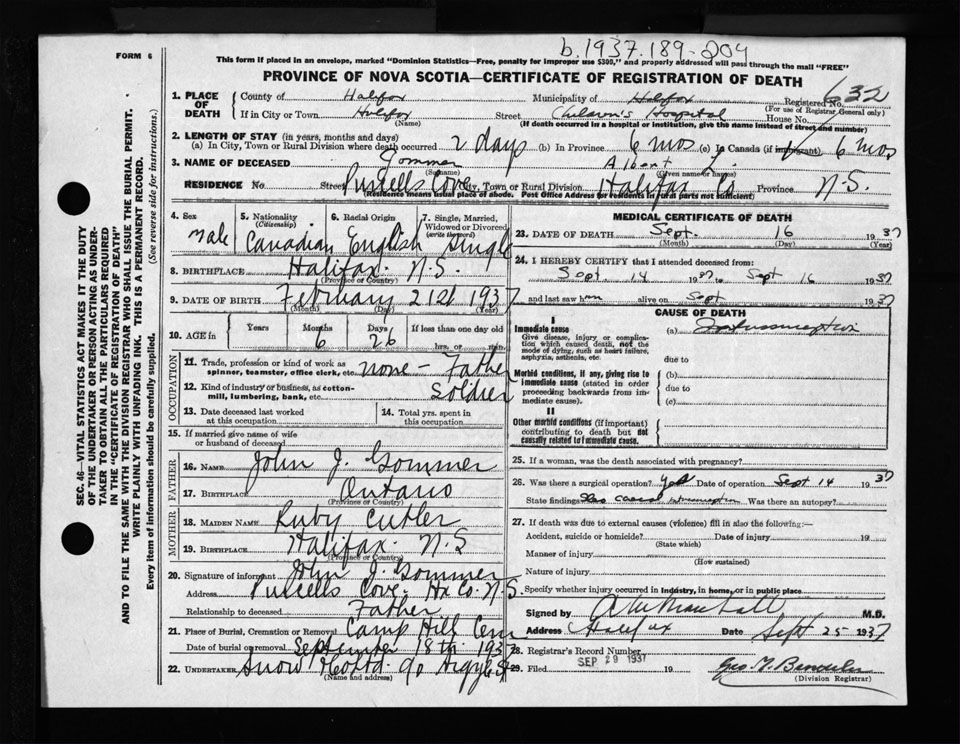 b.1937.189-204
FORM 6
This form if placed in an envelope, marked "Dominion Statistics—Free, penalty for improper use $300," and properly addressed will pass through the mail "FREE"
PROVINCE OF NOVA SCOTIA—CERTIFICATE OF REGISTRATION OF DEATH
632
1. PLACE OF DEATH
County of Halifax Municipality of Halifax Registered No.
(For use of Registrar General only)
If in City or Town Halifax Street Children's Hospital House No.
(Name) (If death occurred in a hospital or institution, give the name instead of street and number)
2. LENGTH OF STAY (in years, months and days)
(a) In City, Town or Rural Division where death occurred 2 days (b) In Province 6 mos (c) In Canada (if immigrant) 6 mos
3. NAME OF DECEASED Gommer Albert L.
(Surname) (Given name or names)
RESIDENCE No. Street Purcells Cove City, Town or Rural Division Halifax Co Province N.S.
(Residence means usual place of abode. Post Office Address for residents in rural parts not sufficient)
4. Sex
Male
5. Nationality
(Citizenship)
Canadian
6. Racial Origin
English
7. Single, Married, Widowed or Divorced
(write the word)
Single
8. BIRTHPLACE Halifax. N.S.
(Province or Country)
9. DATE OF BIRTH February 21st 1937
(Month) (Day) (Year)
10. AGE in
Years
Months
6
Days
26
If less than one day old
hrs. or min.
OCCUPATION
11. Trade, profession or kind of work as spinner, teamster, office clerk, etc. none - Father
12. Kind of industry or business, as cotton-mill, lumbering, bank, etc. Soldier
13. Date deceased last worked at this occupation
14. Total yrs. spent in this occupation
15. If married give name of wife or husband of deceased
FATHER
16. NAME John J. Gommer
17. BIRTHPLACE Ontario
(Province or Country)
MOTHER
18. MAIDEN NAME Ruby Cutler
19. BIRTHPLACE Halifax. N.S
(Province or Country)
20. Signature of informant John J. Gommer
Address Purcells Cove. Hx Co. N.S.
Relationship to deceased Father
21. Place of Burial, Cremation or Removal Camp Hill Cem
Date of burial or removal September 18th 1937
22. UNDERTAKER Snow & Co Ltd. 90 Argyle St
(Name and address)
MEDICAL CERTIFICATE OF DEATH
23. DATE OF DEATH Sept. 16 1937
(Month) (Day) (Year)
24. I HEREBY CERTIFY that I attended deceased from:
Sept 14 1937 to Sept 16 1937
and last saw him alive on Sept 1937
CAUSE OF DEATH
I
Immediate cause
Give disease, injury or complication which caused death, not the mode of dying, such as heart failure, asphyxia, asthenia, etc.
(a) Intussusception
due to
Morbid conditions, if any, giving rise to immediate cause (stated in order proceeding backwards from immediate cause).
(b)
due to
(c)
II
Other morbid conditions (if important) contributing to death but not causally related to immediate cause.
25. If a woman, was the death associated with pregnancy?
26. Was there a surgical operation? yes Date of operation Sept 14 1937
State findings Ileo caecal intussusception Was there an autopsy?
27. If death was due to external causes (violence) fill in also the following:—
Accident, suicide or homicide? Date of injury 19
(State which)
Manner of injury
(How sustained)
Nature of injury
Specify whether injury occurred in industry, in home, or in public place
Signed by M.D.
Address Halifax Date Sept 25 1937
28. Registrar's Record Number
29. Filed SEP 29 1937 19
(Division Registrar)
SEC. 46—VITAL STATISTICS ACT MAKES IT THE DUTY
OF THE UNDERTAKER OR PERSON ACTING AS UNDER-
TAKER TO OBTAIN ALL THE PARTICULARS REQUIRED
IN THE "CERTIFICATE OF REGISTRATION OF DEATH"
AND TO FILE THE SAME WITH THE DIVISION REGISTRAR WHO SHALL ISSUE THE BURIAL PERMIT.
WRITE PLAINLY WITH UNFADING INK. THIS IS A PERMANENT RECORD.
Every item of information should be carefully supplied. (See reverse side for instructions.)